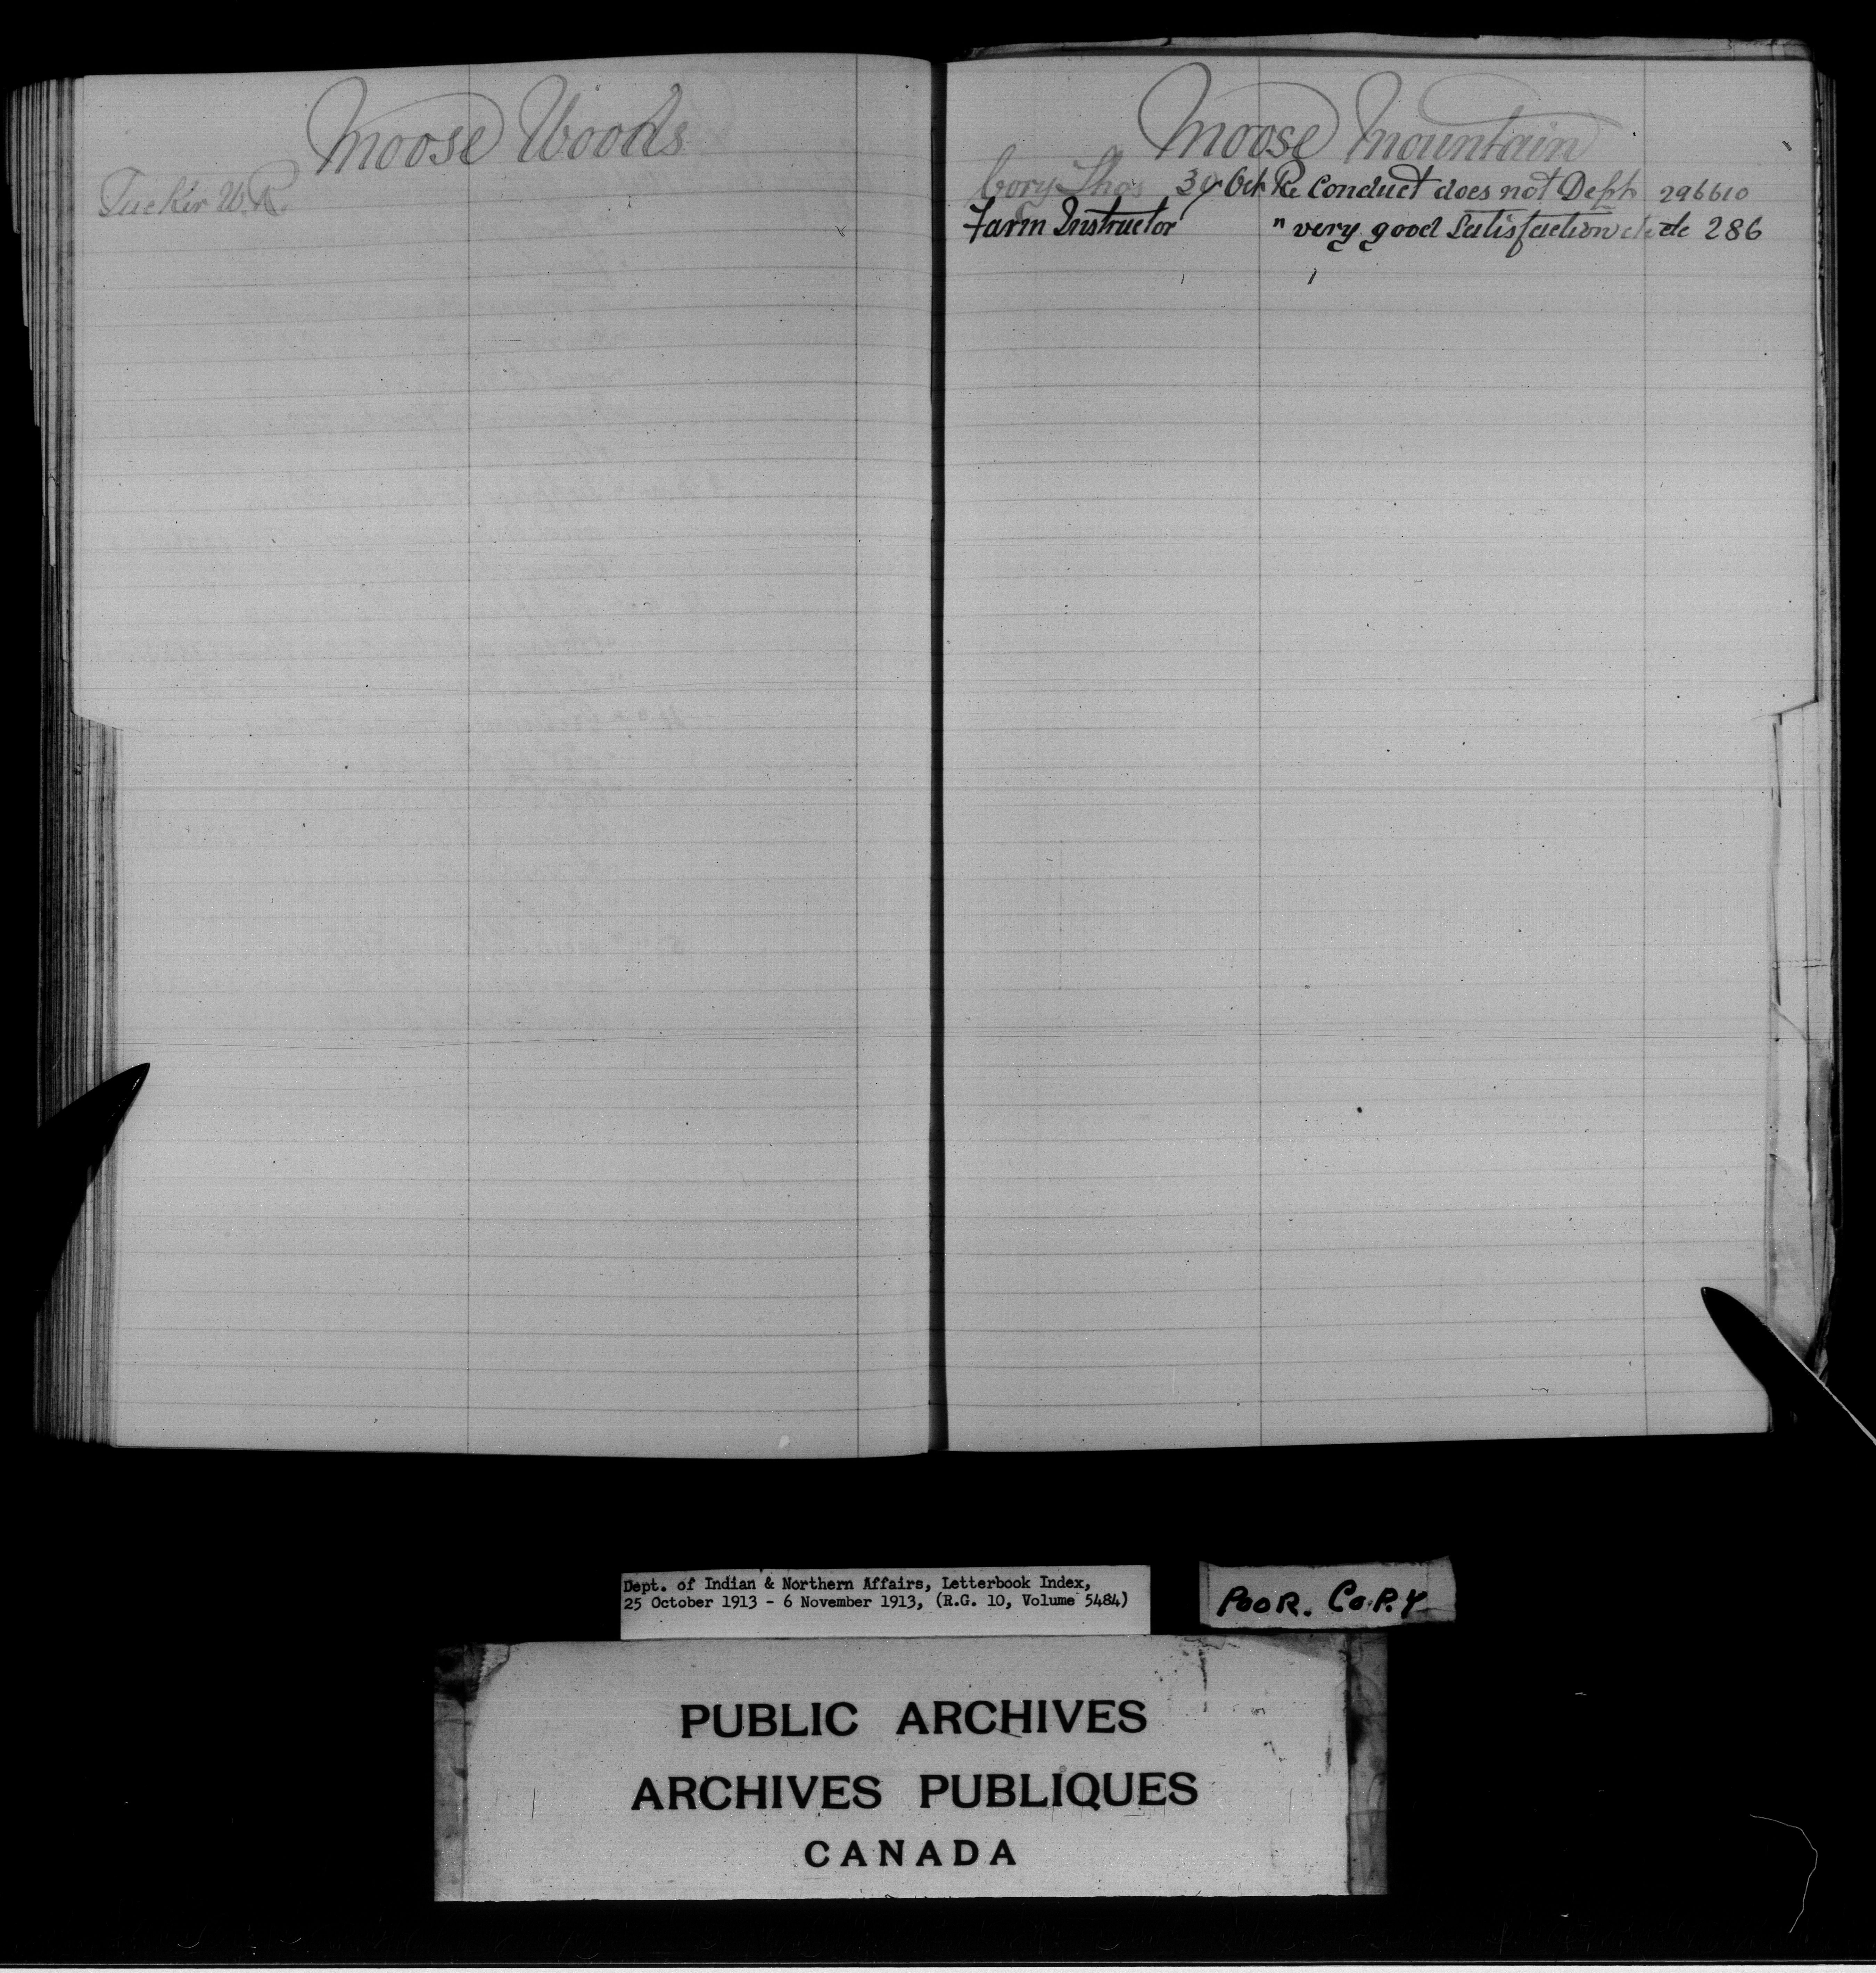 Moose Woods
Tucker W.R.
Moose Mountain
Cory Thos 30 Oct Re Conduct does not Dept 296610
Farm Instructor " very good Satisfaction etc etc 286
Dept. of Indian & Northern Affairs, Letterbook Index,
25 October 1913 - 6 November 1913, (R.G. 10, Volume 5484)
POOR. COPY
PUBLIC ARCHIVES
ARCHIVES PUBLIQUES
CANADA